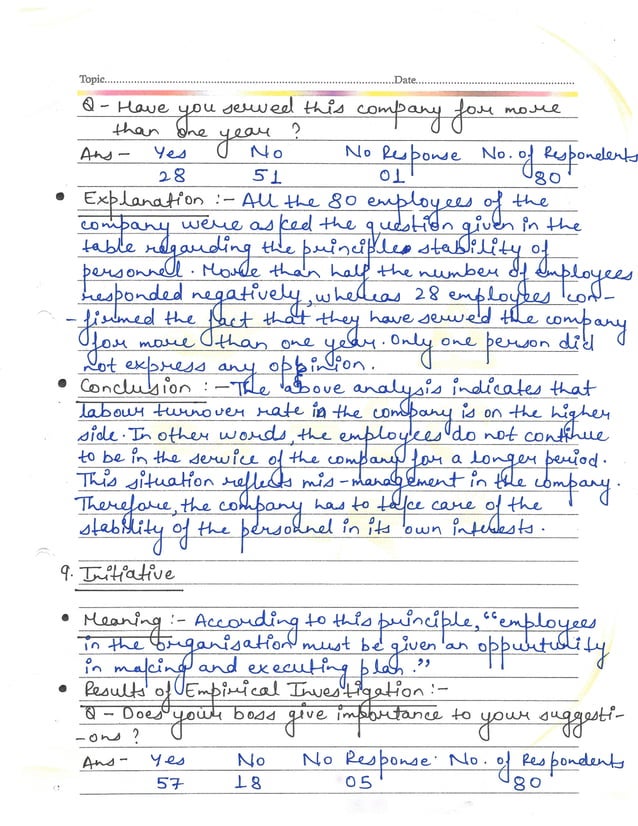 Topic........Date........
Q - Have you served this company for more
than one year ?
Ans - Yes No No Response No. of Respondents
28 51 01 80
• Explanation :- All the 80 employees of the
company were asked the question given in the
table regarding the principle stability of
personnel. More than half the number of employees
responded negatively, whereas 28 employees con-
-firmed the fact that they have served the company
for more than one year. Only one person did
not express any oppinion.
• Conclusion :- The above analysis indicates that
labour turnover rate in the company is on the higher
side. In other words, the employees do not continue
to be in the service of the company for a longer period.
This situation reflects mis-management in the company.
Therefore, the company has to take care of the
stability of the personnel in its own interests.
9. Initiative
• Meaning :- According to this principle, "employees
in the organisation must be given an oppurtunity
in making and executing plan."
• Results of Empirical Investigation :-
Q - Does your boss give importance to your suggesti-
-ons ?
Ans - Yes No No Response No. of Respondents
57 18 05 80